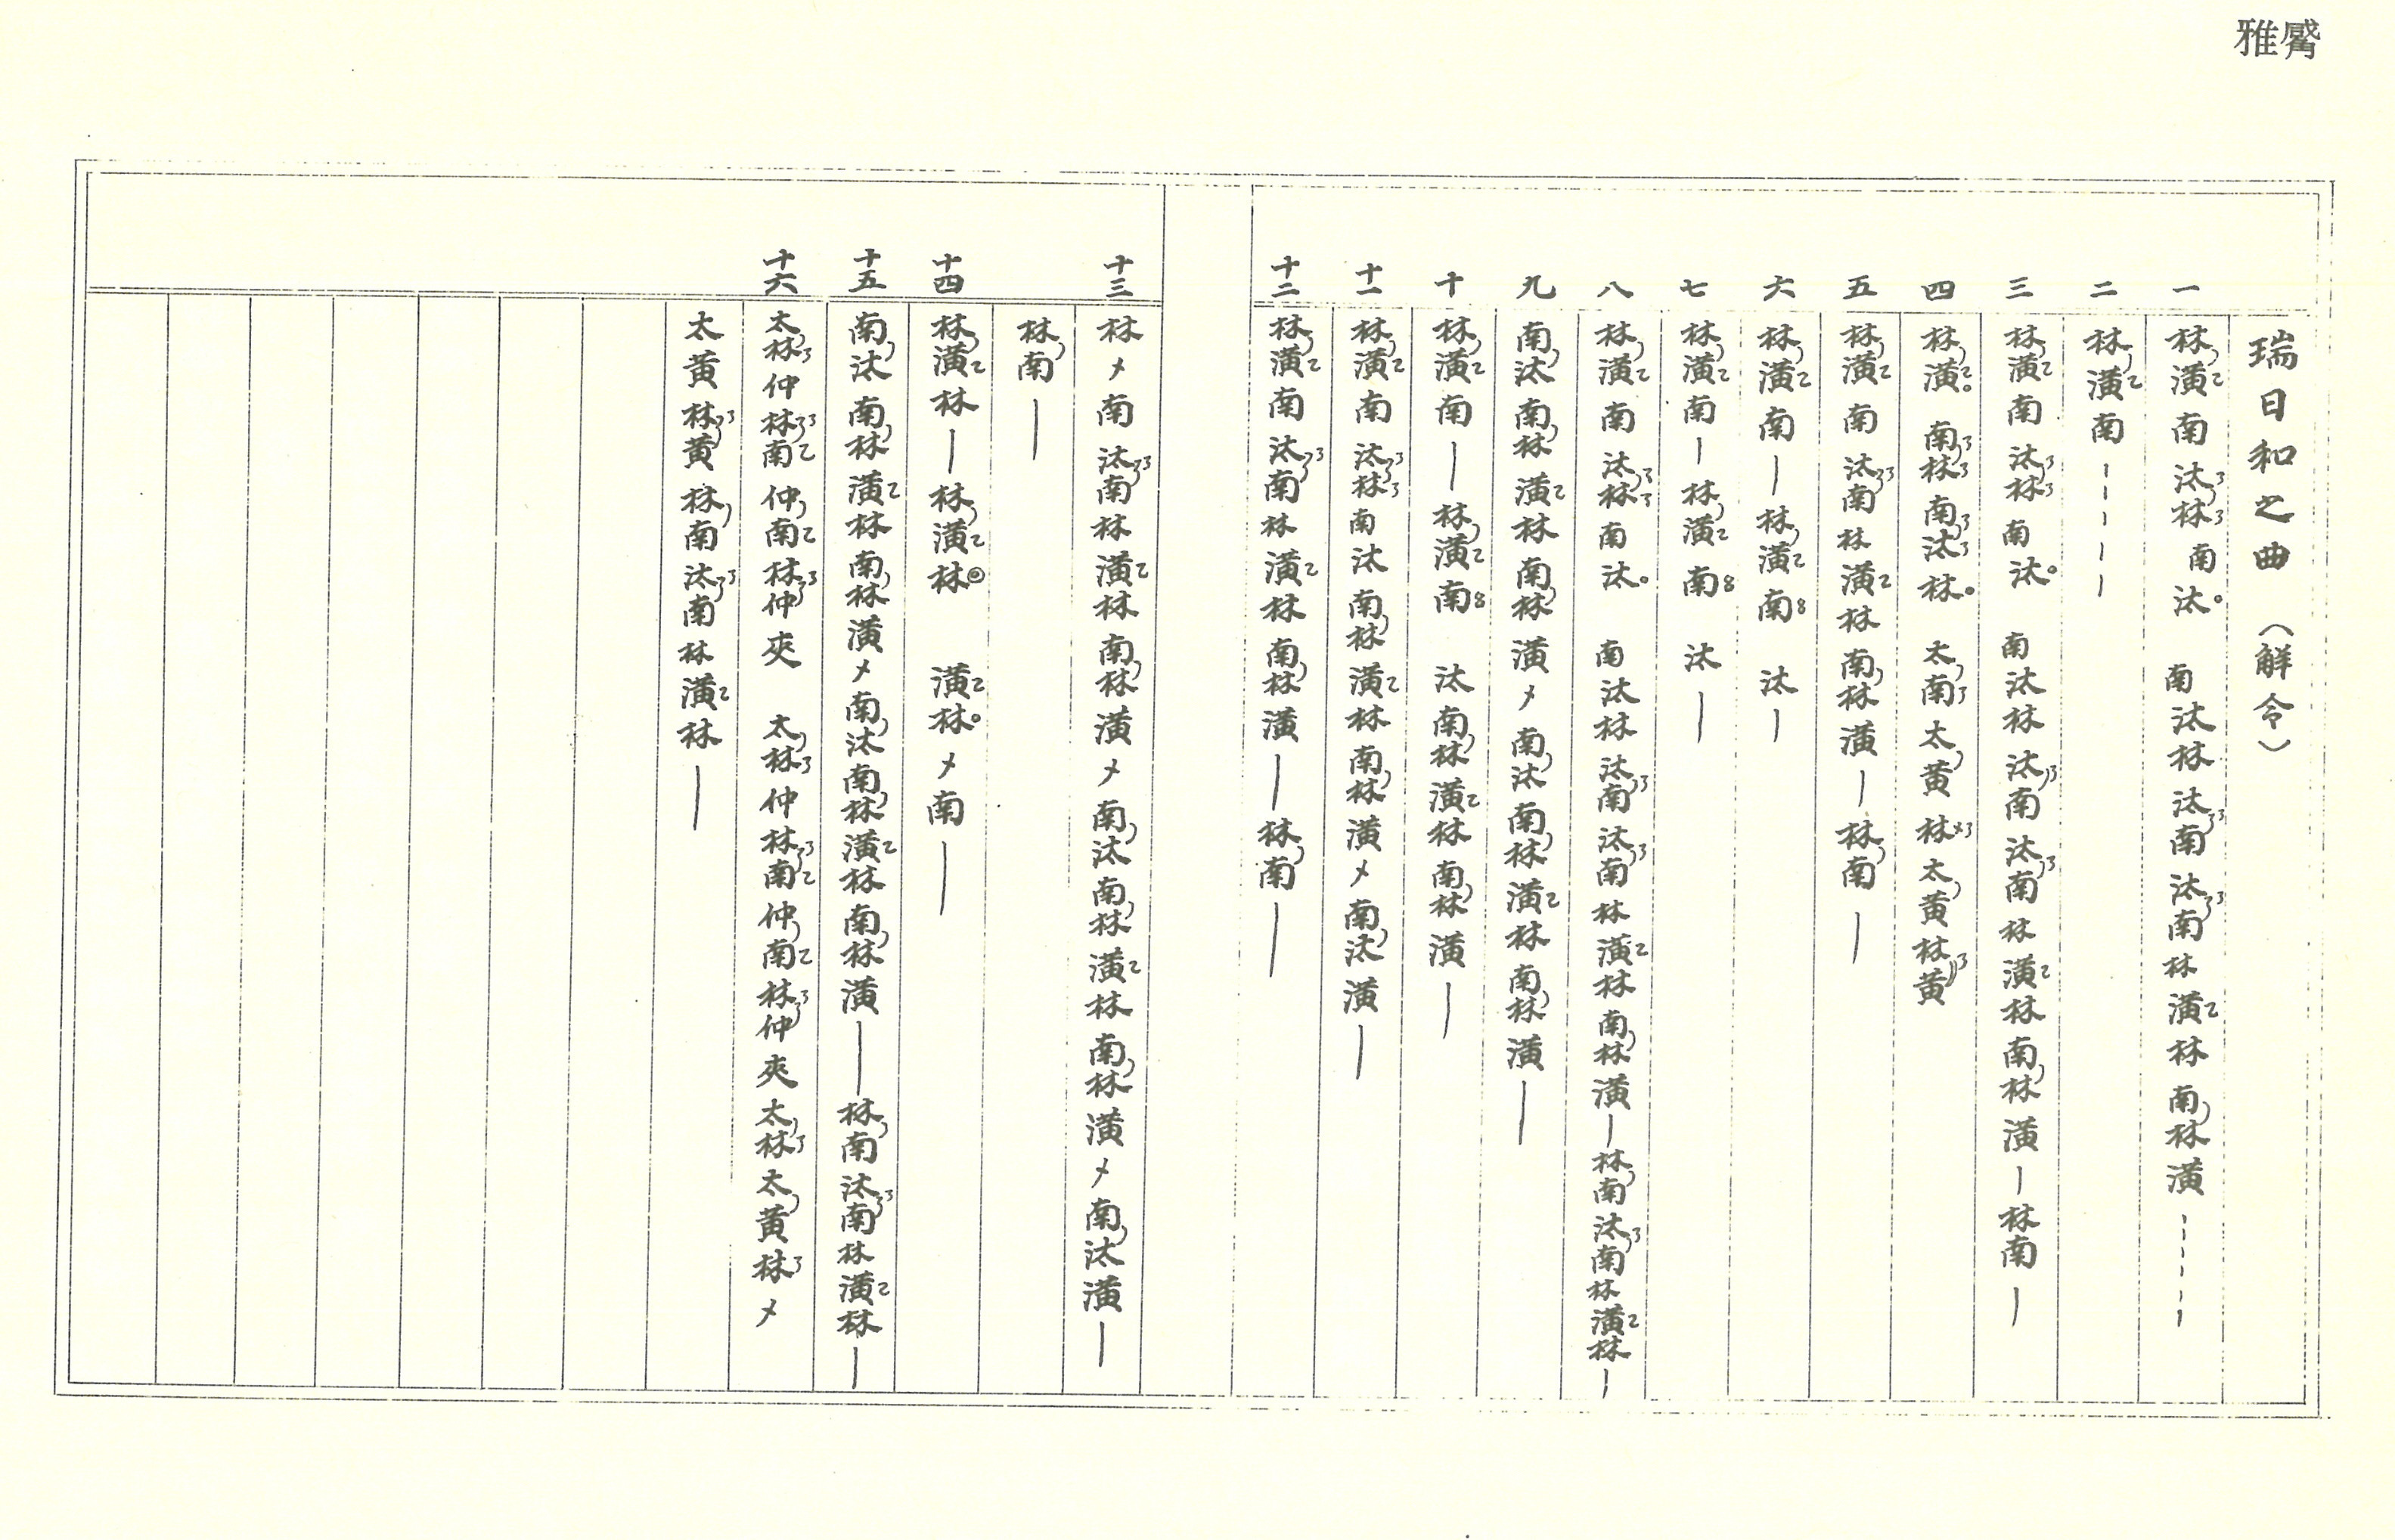 雅觱
瑞日和之曲（解令）
一 林潢南汰林南汰 南汰林汰南汰南林潢林南林潢
二 林潢南
三 林潢南汰林南汰 南汰林汰南汰南林潢林南林潢 林南
四 林潢 南林南汰林 太南太黃林太黃林黃
五 林潢南汰南林潢林南林潢 林南
六 林潢南 林潢南 汰
七 林潢南 林潢南 汰
八 林潢南汰林南汰 南汰林汰南汰南林潢林南林潢 林南汰南林潢林
九 南汰南林潢林南林潢〤南汰南林潢林南林潢
十 林潢南 林潢南 汰南林潢林南林潢
十一 林潢南汰林南汰南林潢林南林潢〤南汰潢
十二 林潢南汰南林潢林南林潢 林南
十三 林〤南汰南林潢林南林潢〤南汰南林潢林南林潢〤南汰潢
林南
十四 林潢林 林潢林 潢林〤南
十五 南汰南林潢林南林潢〤南汰南林潢林南林潢 林南汰南林潢林
十六 太林仲林南仲南林仲夾 太林仲林南仲南林仲夾太林太黃林〤
太黃林黃林南汰南林潢林